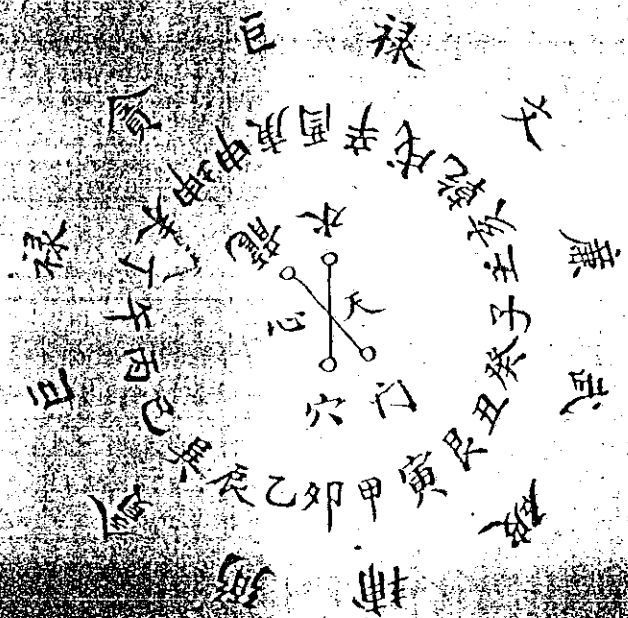 巨禄文廉武破輔弼貪巨禄貪
壬子癸丑艮寅甲卯乙辰巽巳丙午丁未坤申庚酉辛戌乾亥
龍水
天
穴门